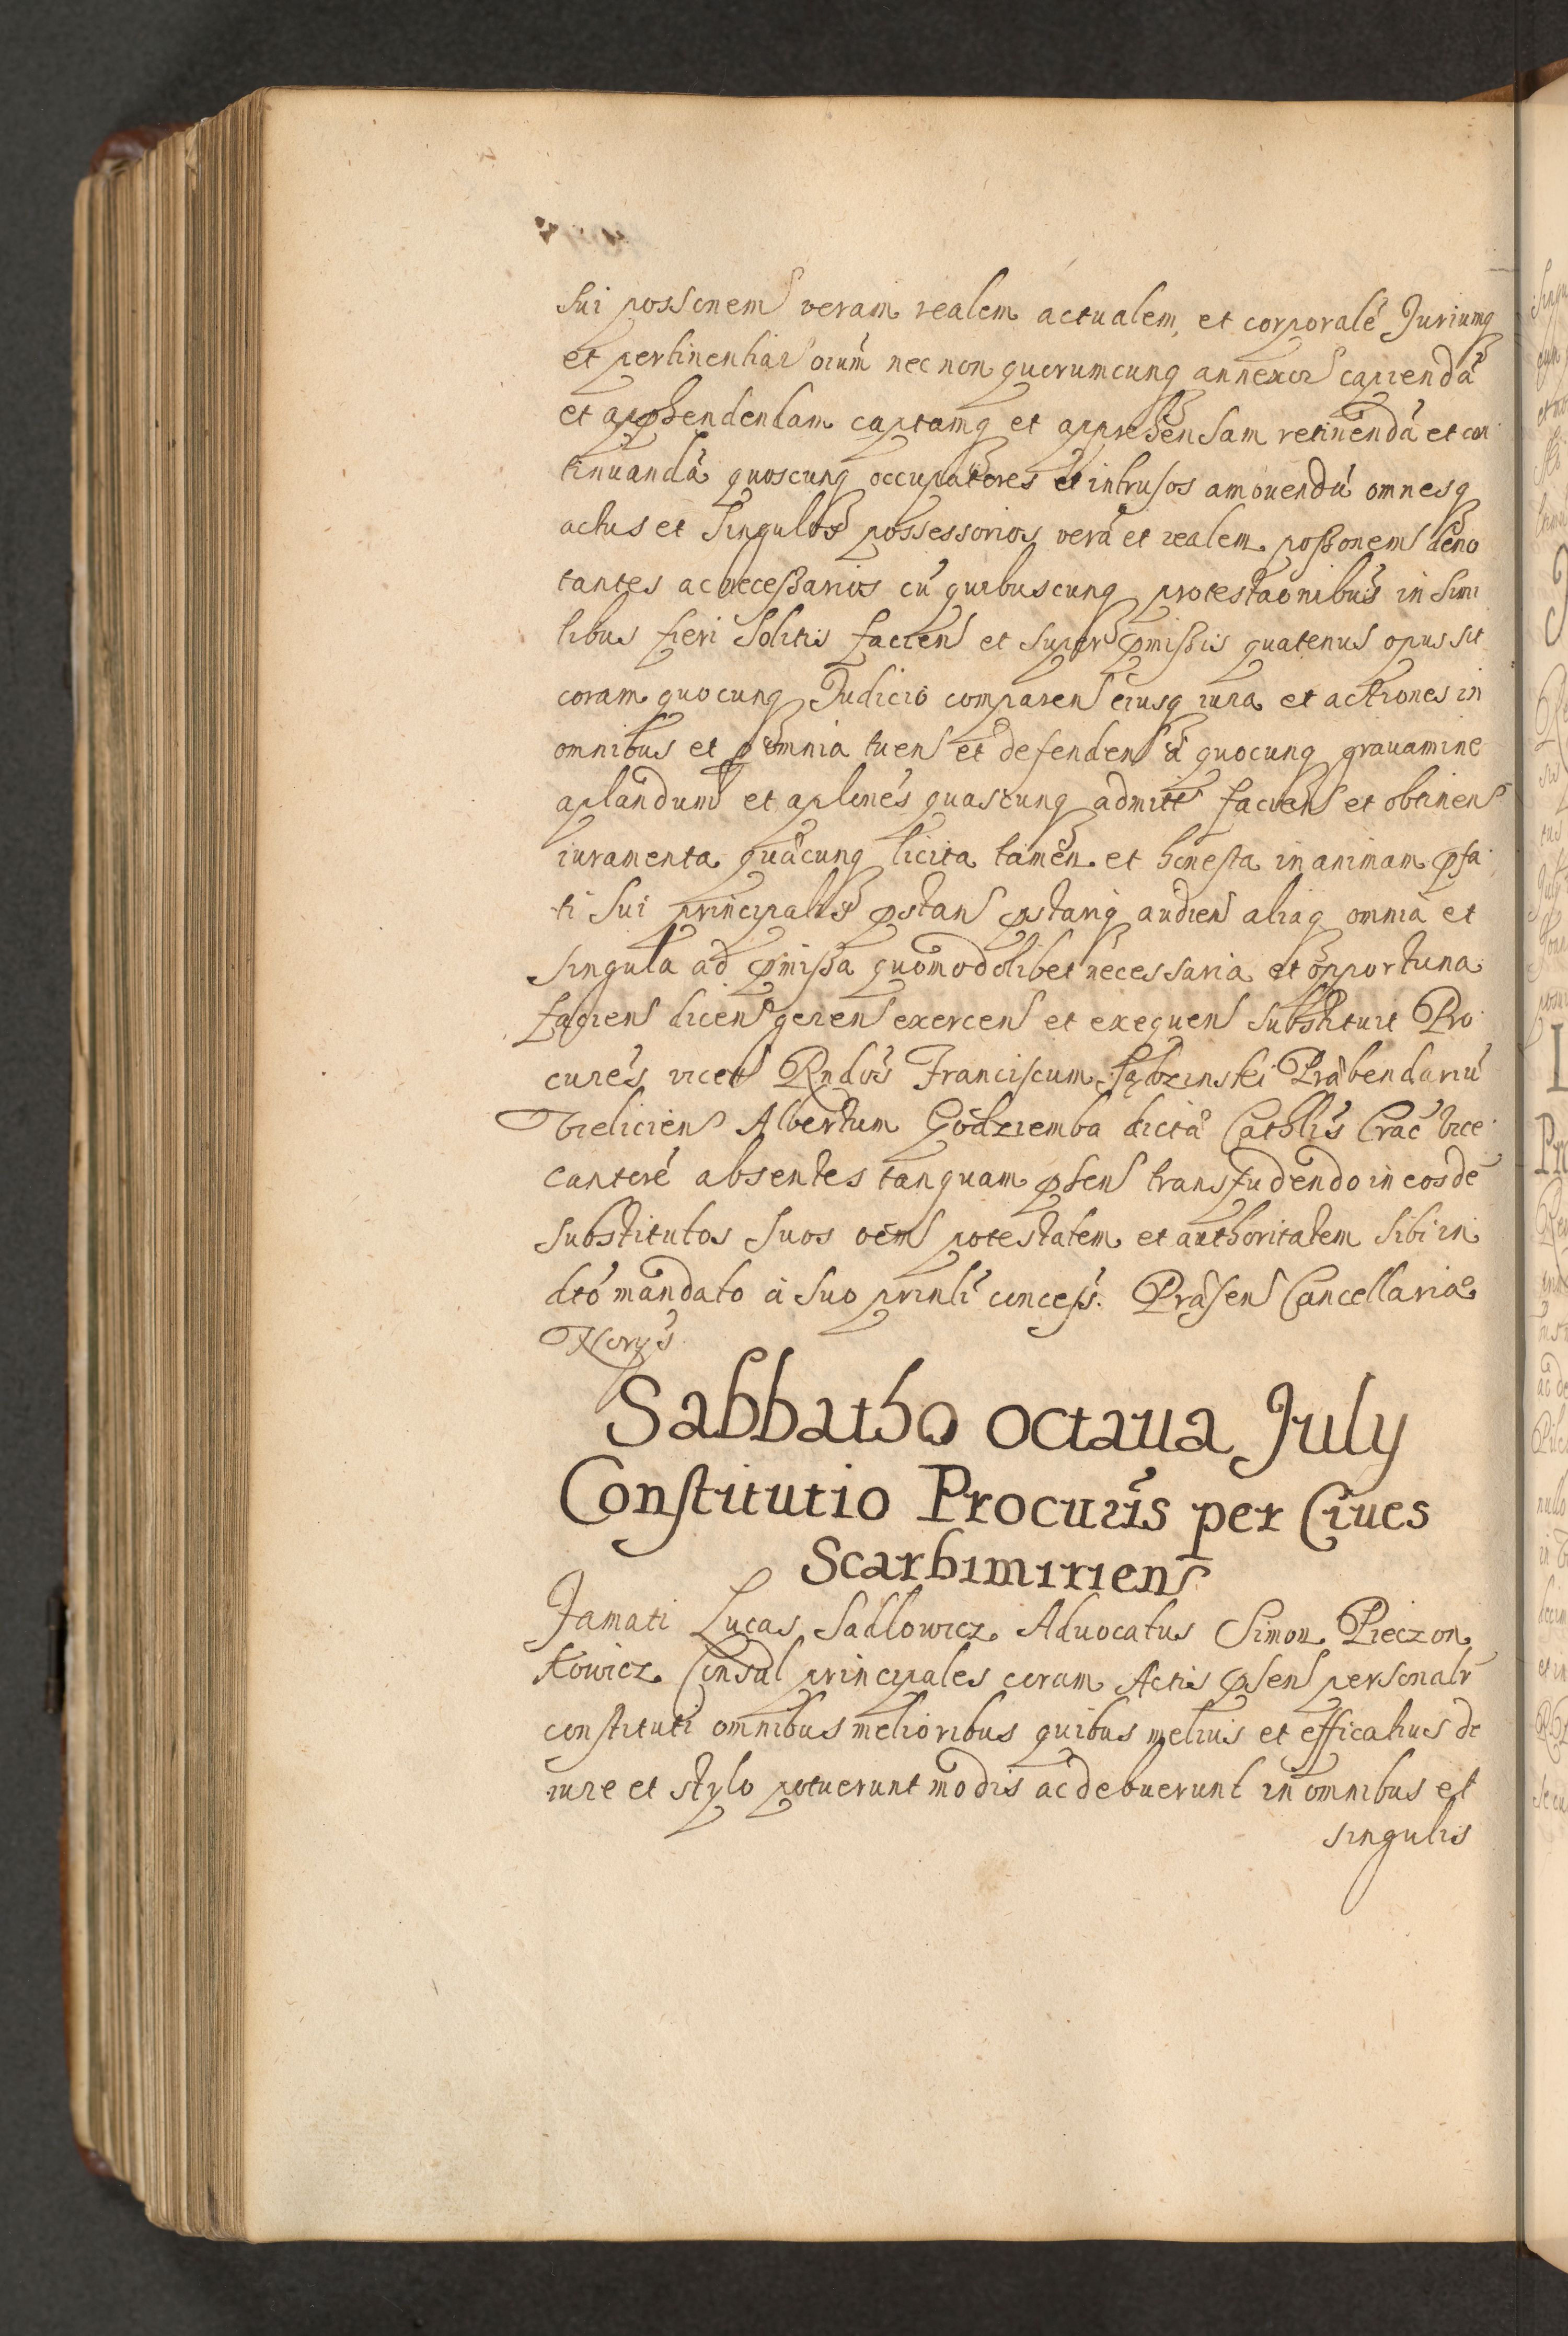 sui possonem veram realem actualem, et corporalé Juriumq
et pertinentiar oium nec non quorumcunq annexor capiendá
et apphendendam captamq et apprehensam retinendá et con
tinuandá quoscunq occupatores et intrusos amovendú omnesq
actus et singulos possessorios verá et realem poßonem deno
tantes ac neceßarios cú quibuscunq protestaonibus in simi
libus fieri solitis faciens et super pmißis quatenus opus sit
coram quocunq Judicio comparen eiusq iura et actiones in
omnibus et p omnia tuen et defenden á quocunq gravamine
aplandum et aplones quascunq admitt facien et obtinen
iuramenta quacunq licita tamen et honesta in animam pfa
ti sui principalis pstan pstariq audien aliaq omnia et
singula ad pmißa quomodolibet necessaria et opportuna
facien dicen geren exercen et exequen substituit Pro
cures vicet Rndos Franciscum Præbendariú
Vielicien Albertum Godziemba dictá Cathlis Crac vice
cantoré absentes tanquam psen transfudendo in eosdé
substitutos suos oem potestatem et authoritatem sibi in
dto mandato á suo prinli conceß. Præsen Cancellariæ
Norijs
Sabbatho octaua July
Constitutio Procuris per Ciues
Scarbimirien
Famati Lucas Sadlowicz Aduocatus Simon Pieczon
kowicz Consul principales coram Actis psen personalr
constituti omnibus melioribus quibus melius et efficatius de
iure et stylo potuerunt modis ac debuerunt in omnibus et
singulis